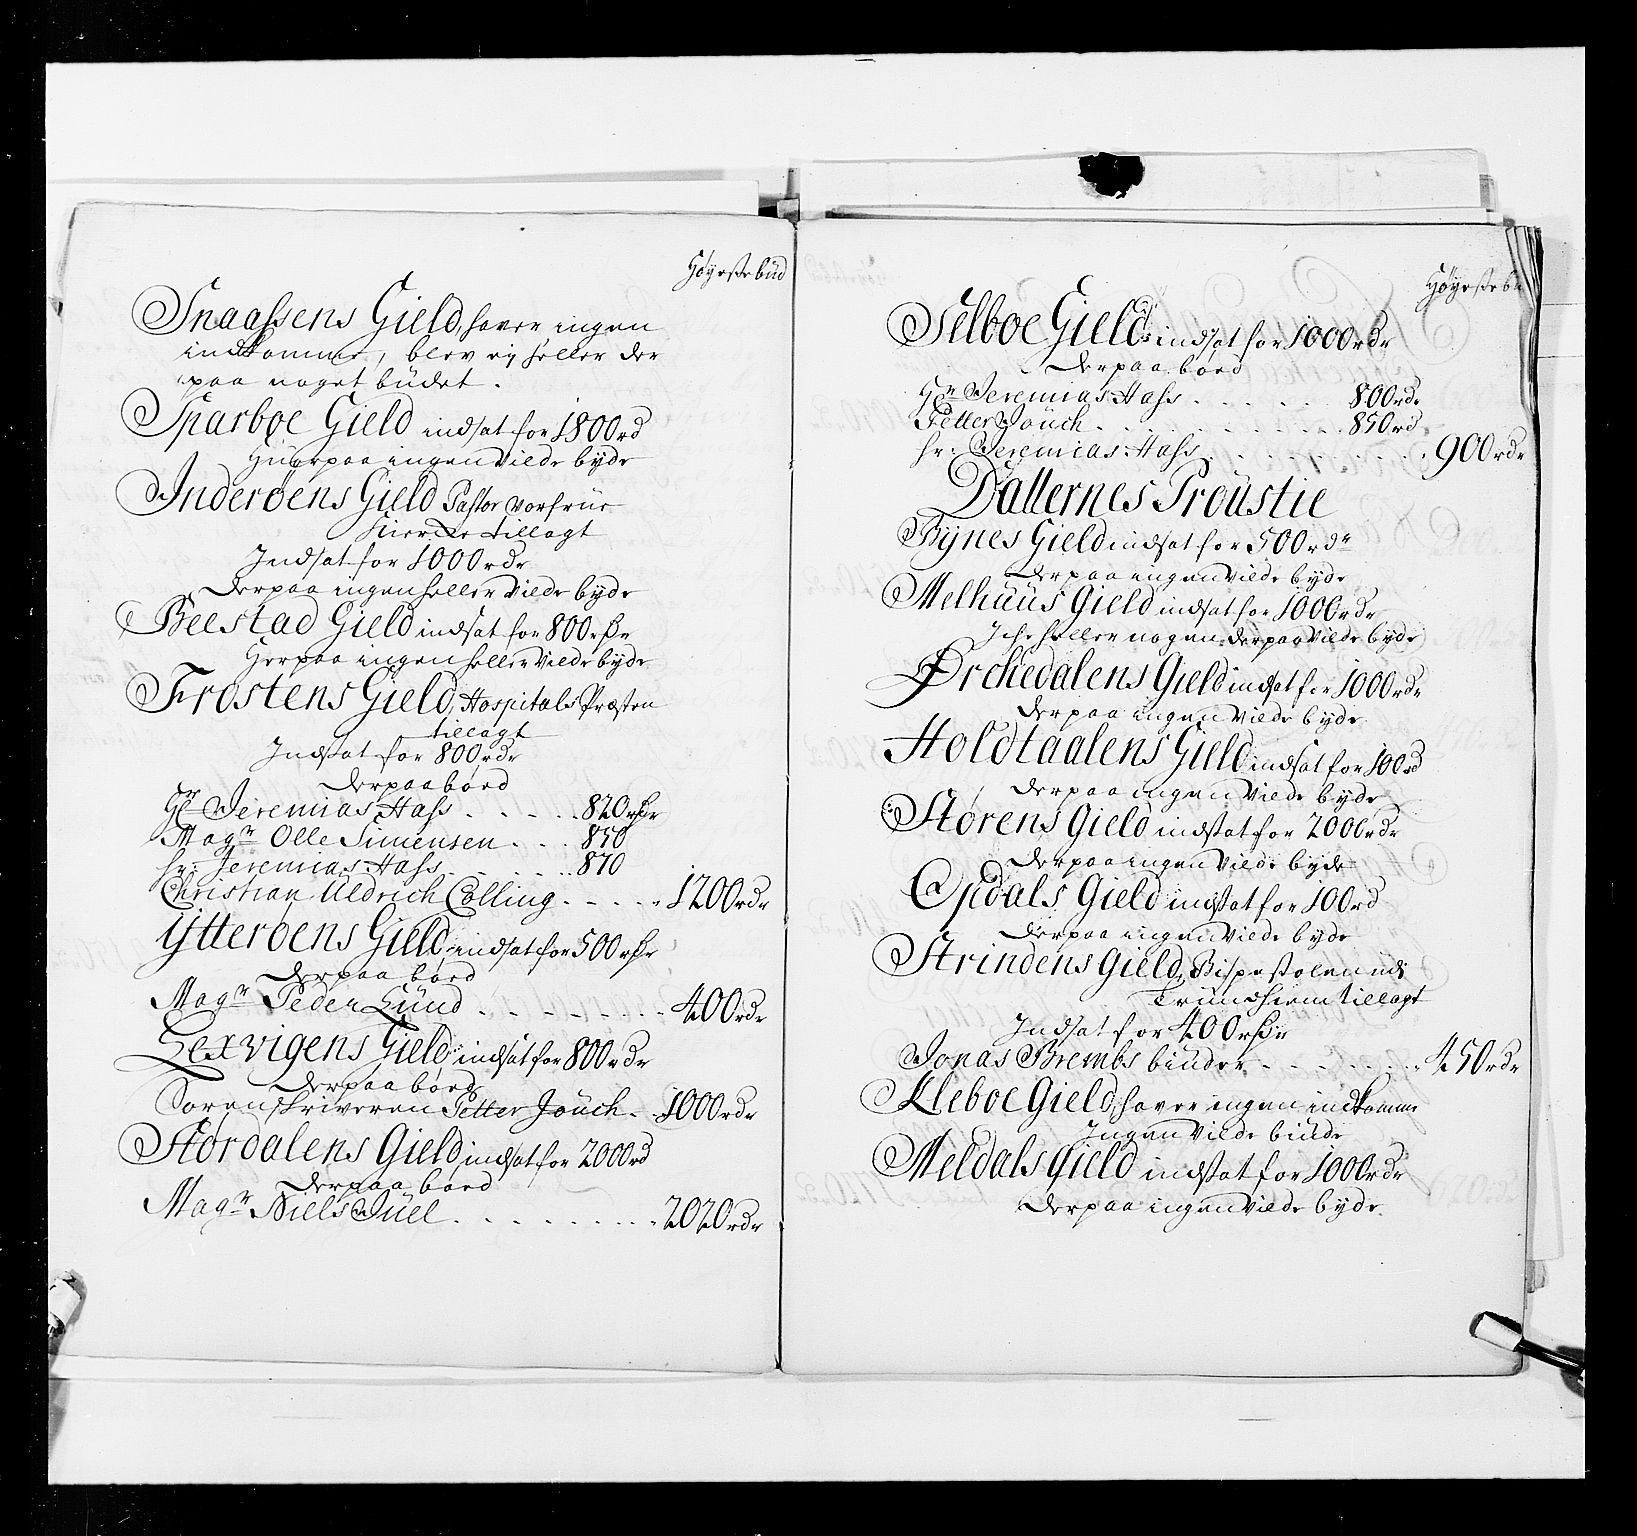 Høyestebud
Snaassens Gield, haver ingen
indkomme, blev ej heller der
paa noget büdet.
Sparboe Gield indsat for 1800 rd
Huorpaa ingen vilde byde
Inderøens Gield Pastor Vorfrue
Kiercke tillagt
Indsat for 1000 rdr
Derpaa ingen heller vilde byde
Beestad Gield indsat for 800 rdr
Herpaa ingen heller vilde byde
Frostens Gield, Hospitals Præsten
tillagt
Indsat for 800 rdr
Derpaa bød
Hr Jeremias Hass . . . . . 820 rdr
Magr Olle Simensen . . . 850
hr: Jeremias Hass . . . . . 870
Christian Uldrich Colling . . . . . 1200 rdr
Ytterøens Gield, indsat for 500 rdr
Derpaa bød
Magr Peder Lünd . . . . . . . . 400 rdr
Lexvigens Gield, indsat for 800 rdr
Derpaa bød
Sorenskriveren Petter Jöuch . . 1000 rdr
Størdalens Gield indsat for 2000 rd
Derpaa bød
Magr Niels Juel . . . . . . . . . 2020 rdr
Høyestebu
Selboe Gield, indsat for 1000 rdr
Derpaa bød
Hr Jeremias Hass . . . . . 800 rdr
Petter Jöuch . . . . . . . . . 850 rd
hr: Jeremias Hass . . . . . . . . . 900 rdr
Dallernes Proustie
Bynes Gield indsat for 500 rdr
Derpaa ingen vilde byde
Melhuus Gield indsat for 1000 rdr
Icke heller nogen derpaa vilde byde
Orckedalens Gield indsat for 1000 rdr
Derpaa ingen vilde byde
Holdtaalens Gield indsat for 100 rd
Derpaa ingen vilde byde
Størens Gield indsat for 2000 rdr
Derpaa ingen vilde byde
Opdals Gield indsat for 100 rd
Derpaa ingen vilde byde
Strindens Gield, Bispestolen udi
Trundhiem tillagt
Indsat for 400 rdr
Jonas Brembs biuder . . . . . . . 450 rdr
Kleboe Gield, haver ingen indkomme
Ingen vilde biude
Meldals Gield indsat for 1000 rdr
Derpaa ingen vilde byde